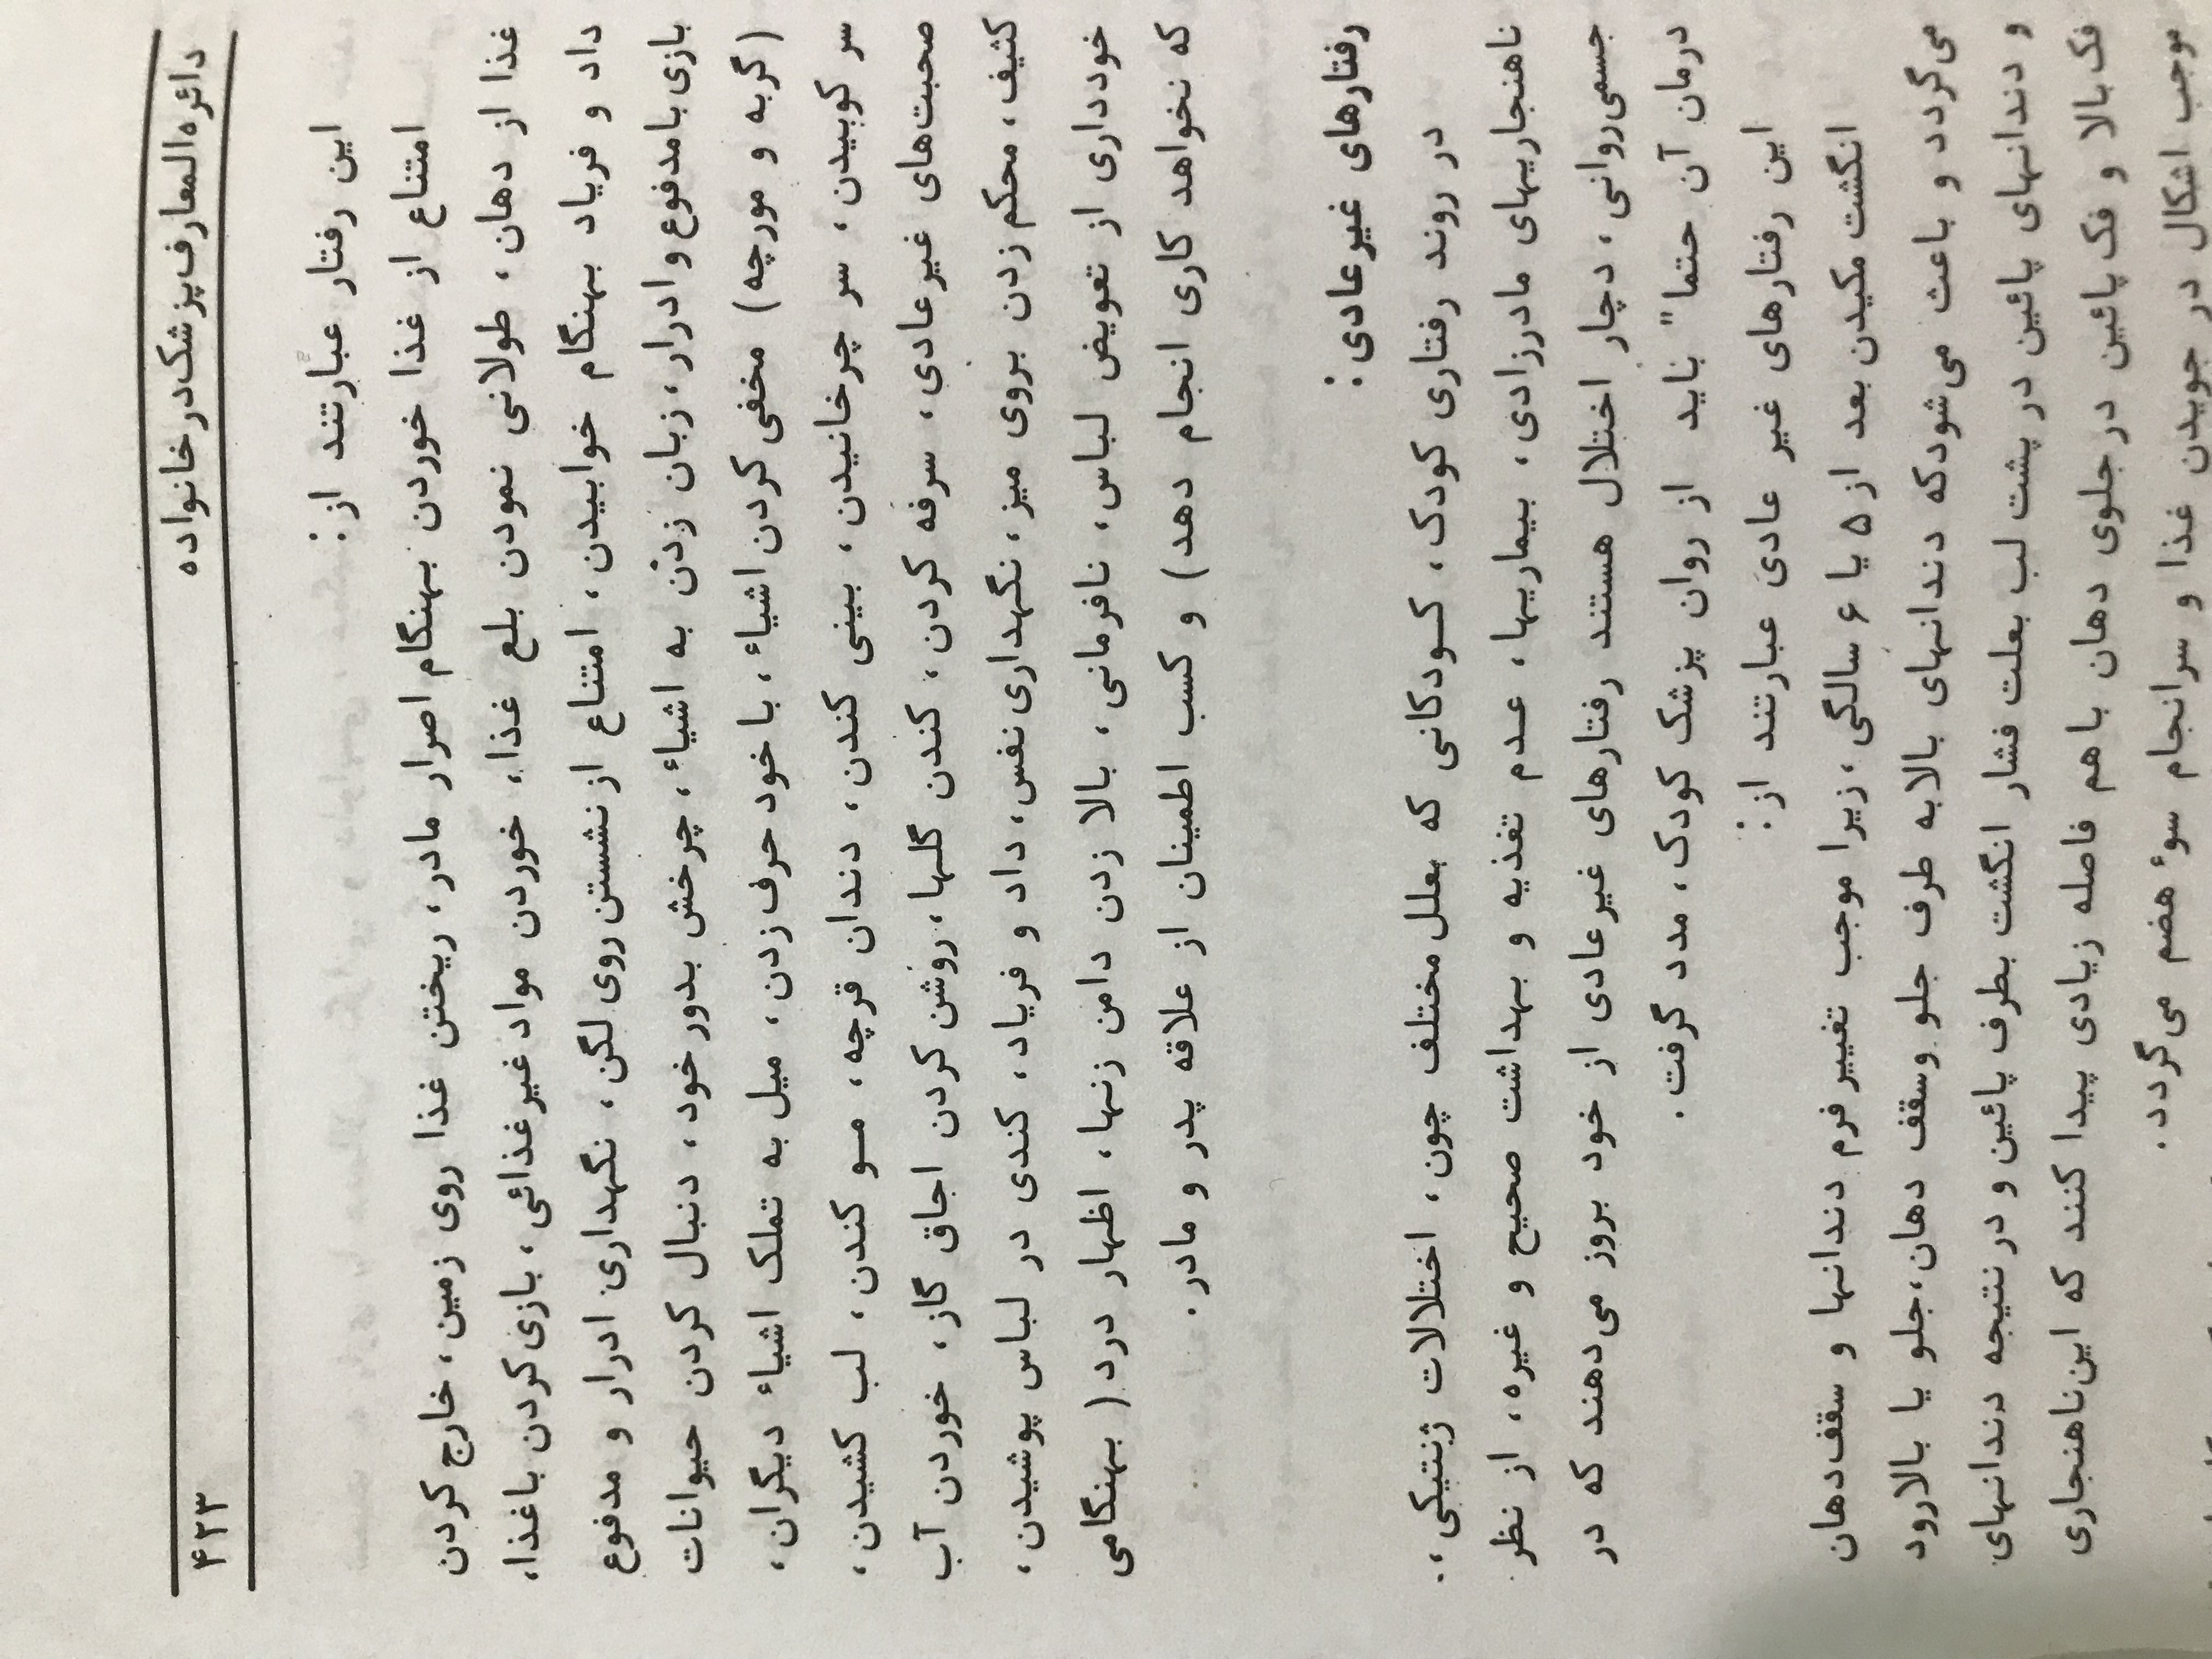 دائره‌المعارف پزشک در خانواده ۴۲۳
این رفتار عبارتند از:
امتناع از غذا خوردن بهنگام اصرار مادر، ریختن غذا روی زمین، خارج کردن
غذا از دهان، طولانی نمودن بلع غذا، خوردن مواد غیرغذائی، بازی کردن باغذا،
داد و فریاد بهنگام خوابیدن، امتناع از نشستن روی لگن، نگهداری ادرار و مدفوع
بازی بامدفوع و ادرار، زبان زدن به اشیاء، چرخش بدور خود، دنبال کردن حیوانات
(گربه و مورچه) مخفی کردن اشیاء، با خود حرف زدن، میل به تملک اشیاء دیگران،
سر کوبیدن، سر چرخانیدن، بینی کندن، دندان قرچه، مو کندن، لب کشیدن،
صحبت‌های غیرعادی، سرفه کردن، کندن گلها، روشن کردن اجاق گاز، خوردن آب
کثیف، محکم زدن بروی میز، نگهداری نفس، داد و فریاد، کندی در لباس پوشیدن،
خودداری از تعویض لباس، نافرمانی، بالا زدن دامن زنها، اظهار درد ( بهنگامی
که نخواهد کاری انجام دهد) و کسب اطمینان از علاقه پدر و مادر.
رفتارهای غیرعادی:
در روند رفتاری کودک، کودکانی که بعلل مختلف چون، اختلالات ژنتیکی،
ناهنجاریهای مادرزادی، بیماریها، عدم تغذیه و بهداشت صحیح و غیره، از نظر
جسمی‌روانی، دچار اختلال هستند رفتارهای غیرعادی از خود بروز می‌دهند که در
درمان آن حتما" باید از روان پزشک کودک، مدد گرفت.
این رفتارهای غیر عادی عبارتند از:
انگشت مکیدن بعد از ۵ یا ۶ سالگی، زیرا موجب تغییر فرم دندانها و سقف دهان
می‌گردد و باعث می‌شودکه دندانهای بالابه طرف جلو وسقف دهان، جلو یا بالارود
و دندانهای پائین در پشت لب بعلت فشار انگشت بطرف پائین و درنتیجه دندانهای
فک بالا و فک پائین درجلوی دهان باهم فاصله زیادی پیدا کنند که این‌ناهنجاری
موجب اشکال در جویدن غذا و سرانجام سوء هضم می‌گردد.